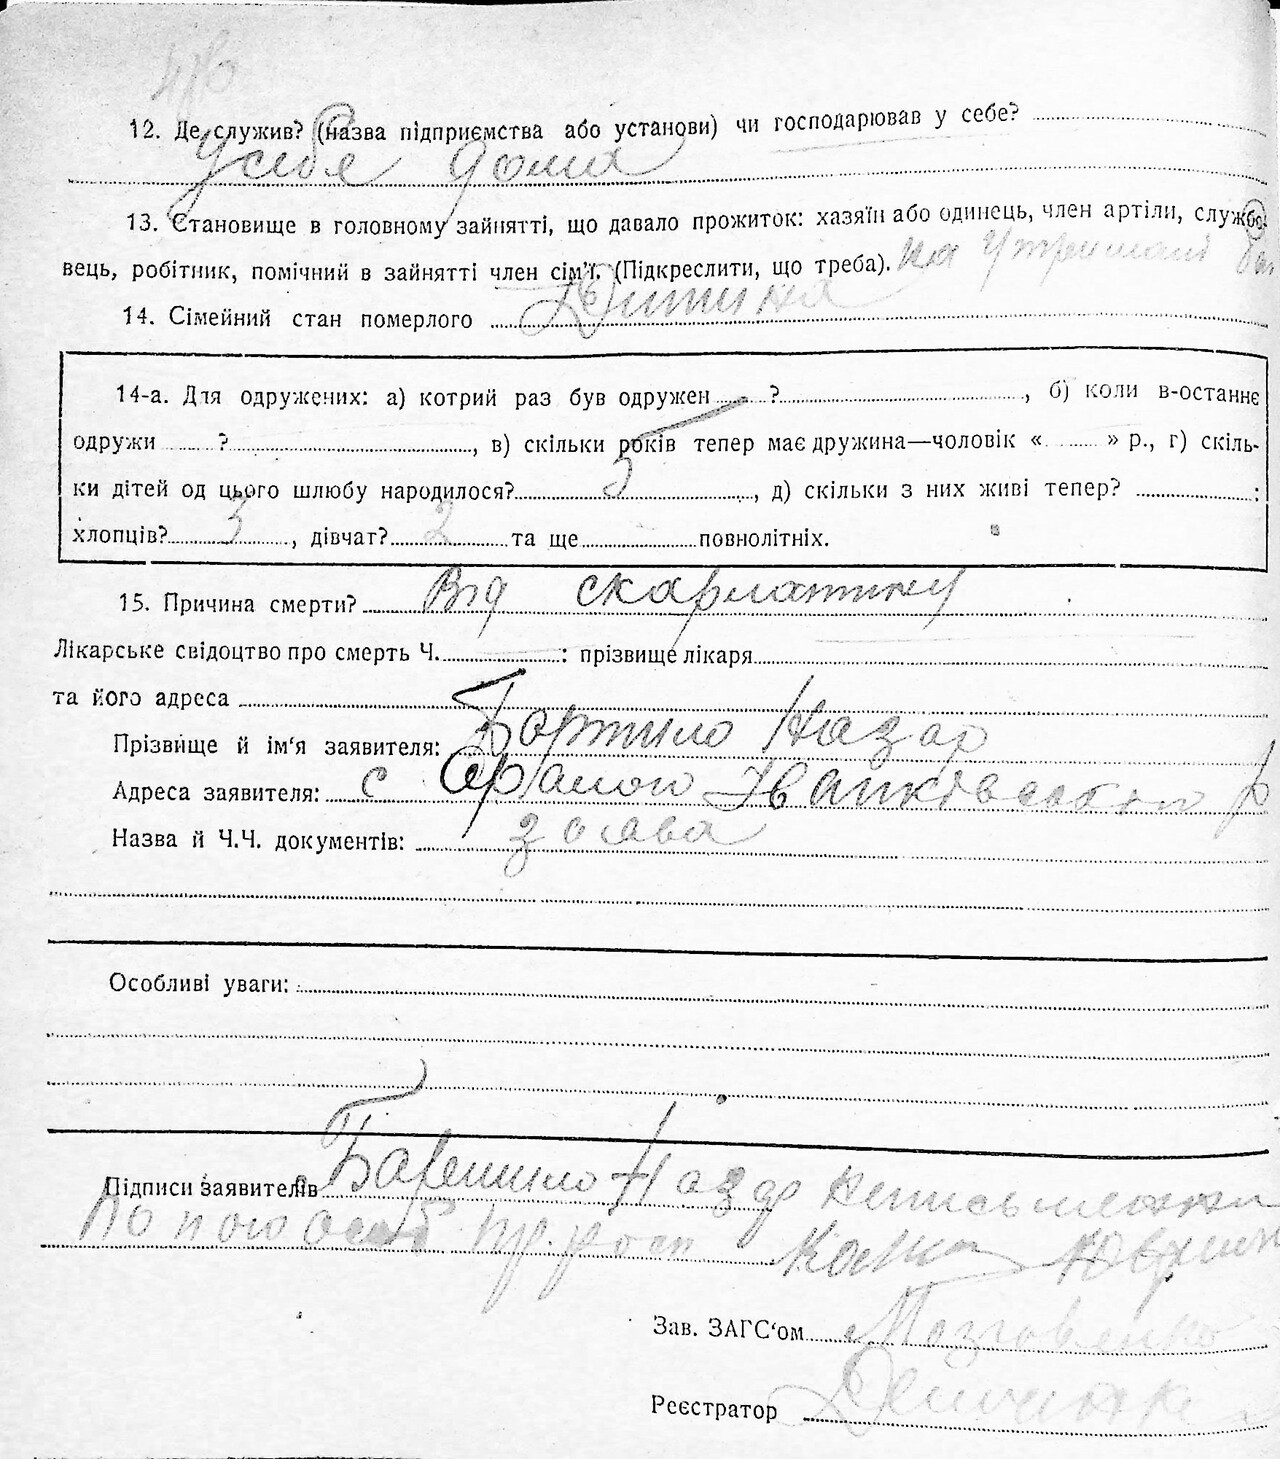 12. Де служив? (назва підприємства або установи) чи господарював у себе?
У себе дома
13. Становище в головному зайнятті, що давало прожиток: хазяїн або одинець, член артіли, службо-
вець, робітник, помічний в зайнятті член сім'ї. (Підкреслити, що треба). на утриманні
14. Сімейний стан померлого Дитина
14-а. Для одружених: а) котрий раз був одружен ? , б) коли в-останнє
одружи ? , в) скільки років тепер має дружина—чоловік « » р., г) скіль-
ки дітей од цього шлюбу народилося? 5 , д) скільки з них живі тепер? :
хлопців? 3 , дівчат? 2 та ще повнолітніх.
15. Причина смерти? Від скарлатину
Лікарське свідоцтво про смерть Ч. : прізвище лікаря
та його адреса
Прізвище й ім'я заявителя: Бортило Назар
Адреса заявителя: с Іванківського р
Назва й Ч.Ч. документів: заява
Особливі уваги:
Підписи заявителів Назар неписьменни
По його
Зав. ЗАГС'ом Мозговенко
Реєстратор